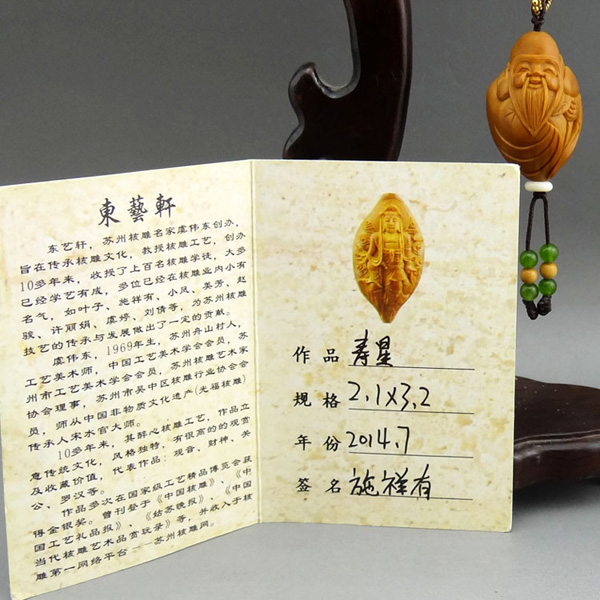 東藝軒
东艺轩，苏州核雕名家虞伟东创办，
旨在传承核雕文化，教授核雕工艺，创办
10多年来，收授了上百名核雕学徒，大多
已经学艺有成，多位已经在核雕业内小有
名气，如叶子、施祥有、小凤、美芳、赵
骏、许丽娟、虞婷、刘倩等，为苏州核雕
技艺的传承与发展做出了一定的贡献。
虞伟东，1969年生，苏州舟山村人，
工艺美术师，中国工艺美术学会会员，苏
州市工艺美术学会会员，苏州核雕艺术家
协会理事，苏州市吴中区核雕行业协会会
员，师从中国非物质文化遗产(光福核雕)
传承人宋水官大师。
10多年来，其醉心核雕工艺，作品立
意传统文化，风格独特，有很高的的观赏
及收藏价值，代表作品：观音、财神、关
公、罗汉等。
作品多次在国家级工艺精品博览会获
得金银奖。曾刊登于《中国核雕》、《中
国工艺礼品报》、《姑苏晚报》、《中国
当代核雕艺术品赏玩录》等，并收入于核
雕第一网络平台——苏州核雕网。
作品 寿星
规格 2.1×3.2
年份 2014.7
签名 施祥有